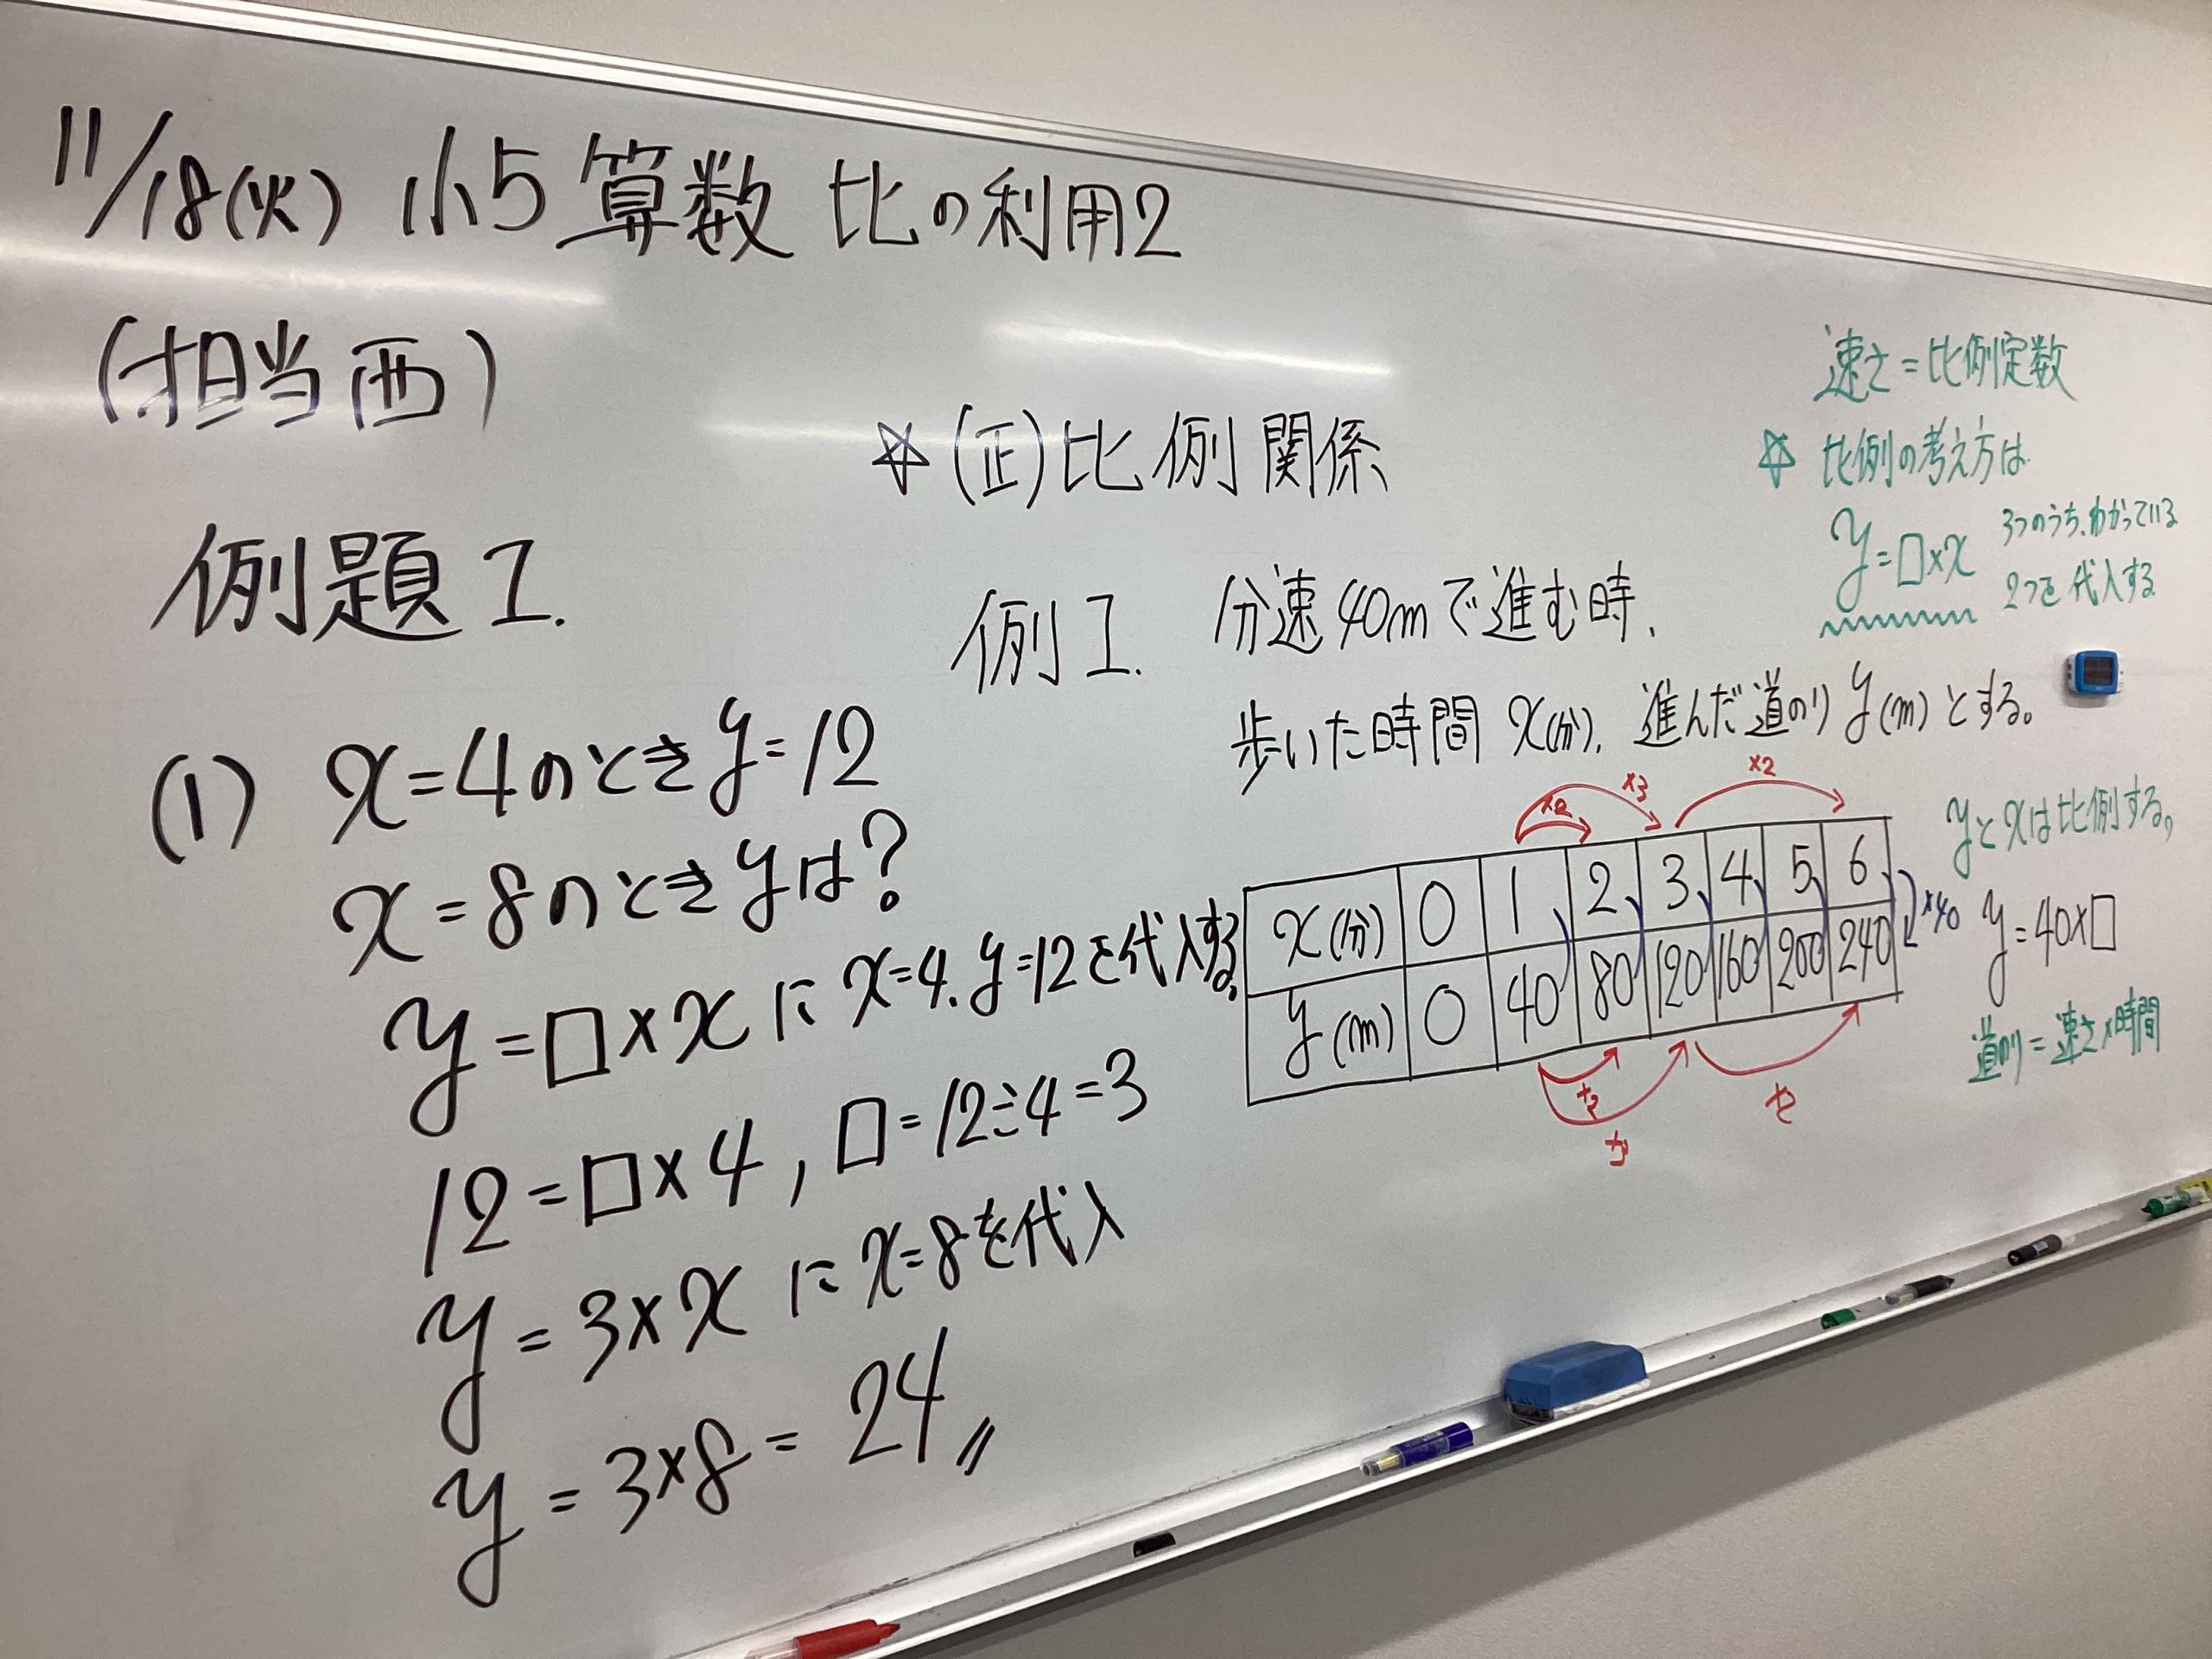 11/18(火) 小5 算数 比の利用2
(担当 西)
例題 1.
(1) x=4のときy=12
x=8のときyは?
y=□×x に x=4, y=12を代入する。
12=□×4, □=12÷4=3
y=3×x に x=8を代入
y=3×8=24〃
☆(正)比例関係
例1. 分速40mで進む時、
歩いた時間 x(分)、進んだ道のり y(m)とする。
×2 ×3 ×2
x(分) 0 1 2 3 4 5 6
y(m) 0 40 80 120 160 200 240
×40
×2 ×2
×3
速さ=比例定数
☆ 比例の考え方は
y=□×x
3つのうち、わかっている
2つを代入する
yとxは比例する。
y=40×□
道のり=速さ×時間